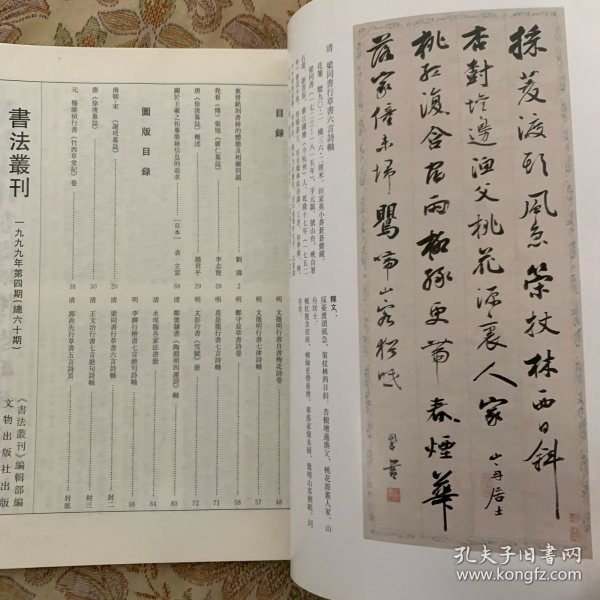 採菱渡頭風急策杖林西日斜
杏對壇邊漁父桃花源裏人家
桃紅復含宿雨柳綠更帶春煙華
落家僮未掃鶯啼山客猶眠
山舟居士
同書
清 梁同書行草書六言詩軸
釋文:
採菱渡頭風急,策杖林西日斜。杏樹壇邊漁父,桃花源裏人家。山
舟居士。
桃紅復含宿雨,柳綠更帶春煙。華落家僮未掃,鶯啼山客猶眠。同
書書
目錄
東晉銘刻書跡的體態及相關問題 劉濤 2
我看《(傳)張旭〈嚴仁墓誌〉》 李志賢 26
唐《徐浚墓誌》概述 趙君平 29
關於王羲之拓摹墨跡信息的追求 [日本] 表立雲 88
圖版目錄
南朝·宋 20
唐《徐浚墓誌》 30
元 楊維楨行書《竹西草堂記》卷 38
明 文徵明行書自書梅花詩卷 48
明 文徵明行書七律詩軸 57
明 鄭守益草書詩卷 58
明 莫是龍行書七言詩軸 71
明 文彭行書 72
83
84
96
清 梁同書行草書六言詩軸 封二
清 王文治行書七言絕句詩軸 封三
清 郭尚先行草書五言詩頁 封底
書法叢刊
一九九九年第四期(總六十期)
《書法叢刊》編輯部編
文物出版社出版
孔夫子旧书网
www.kongfz.com